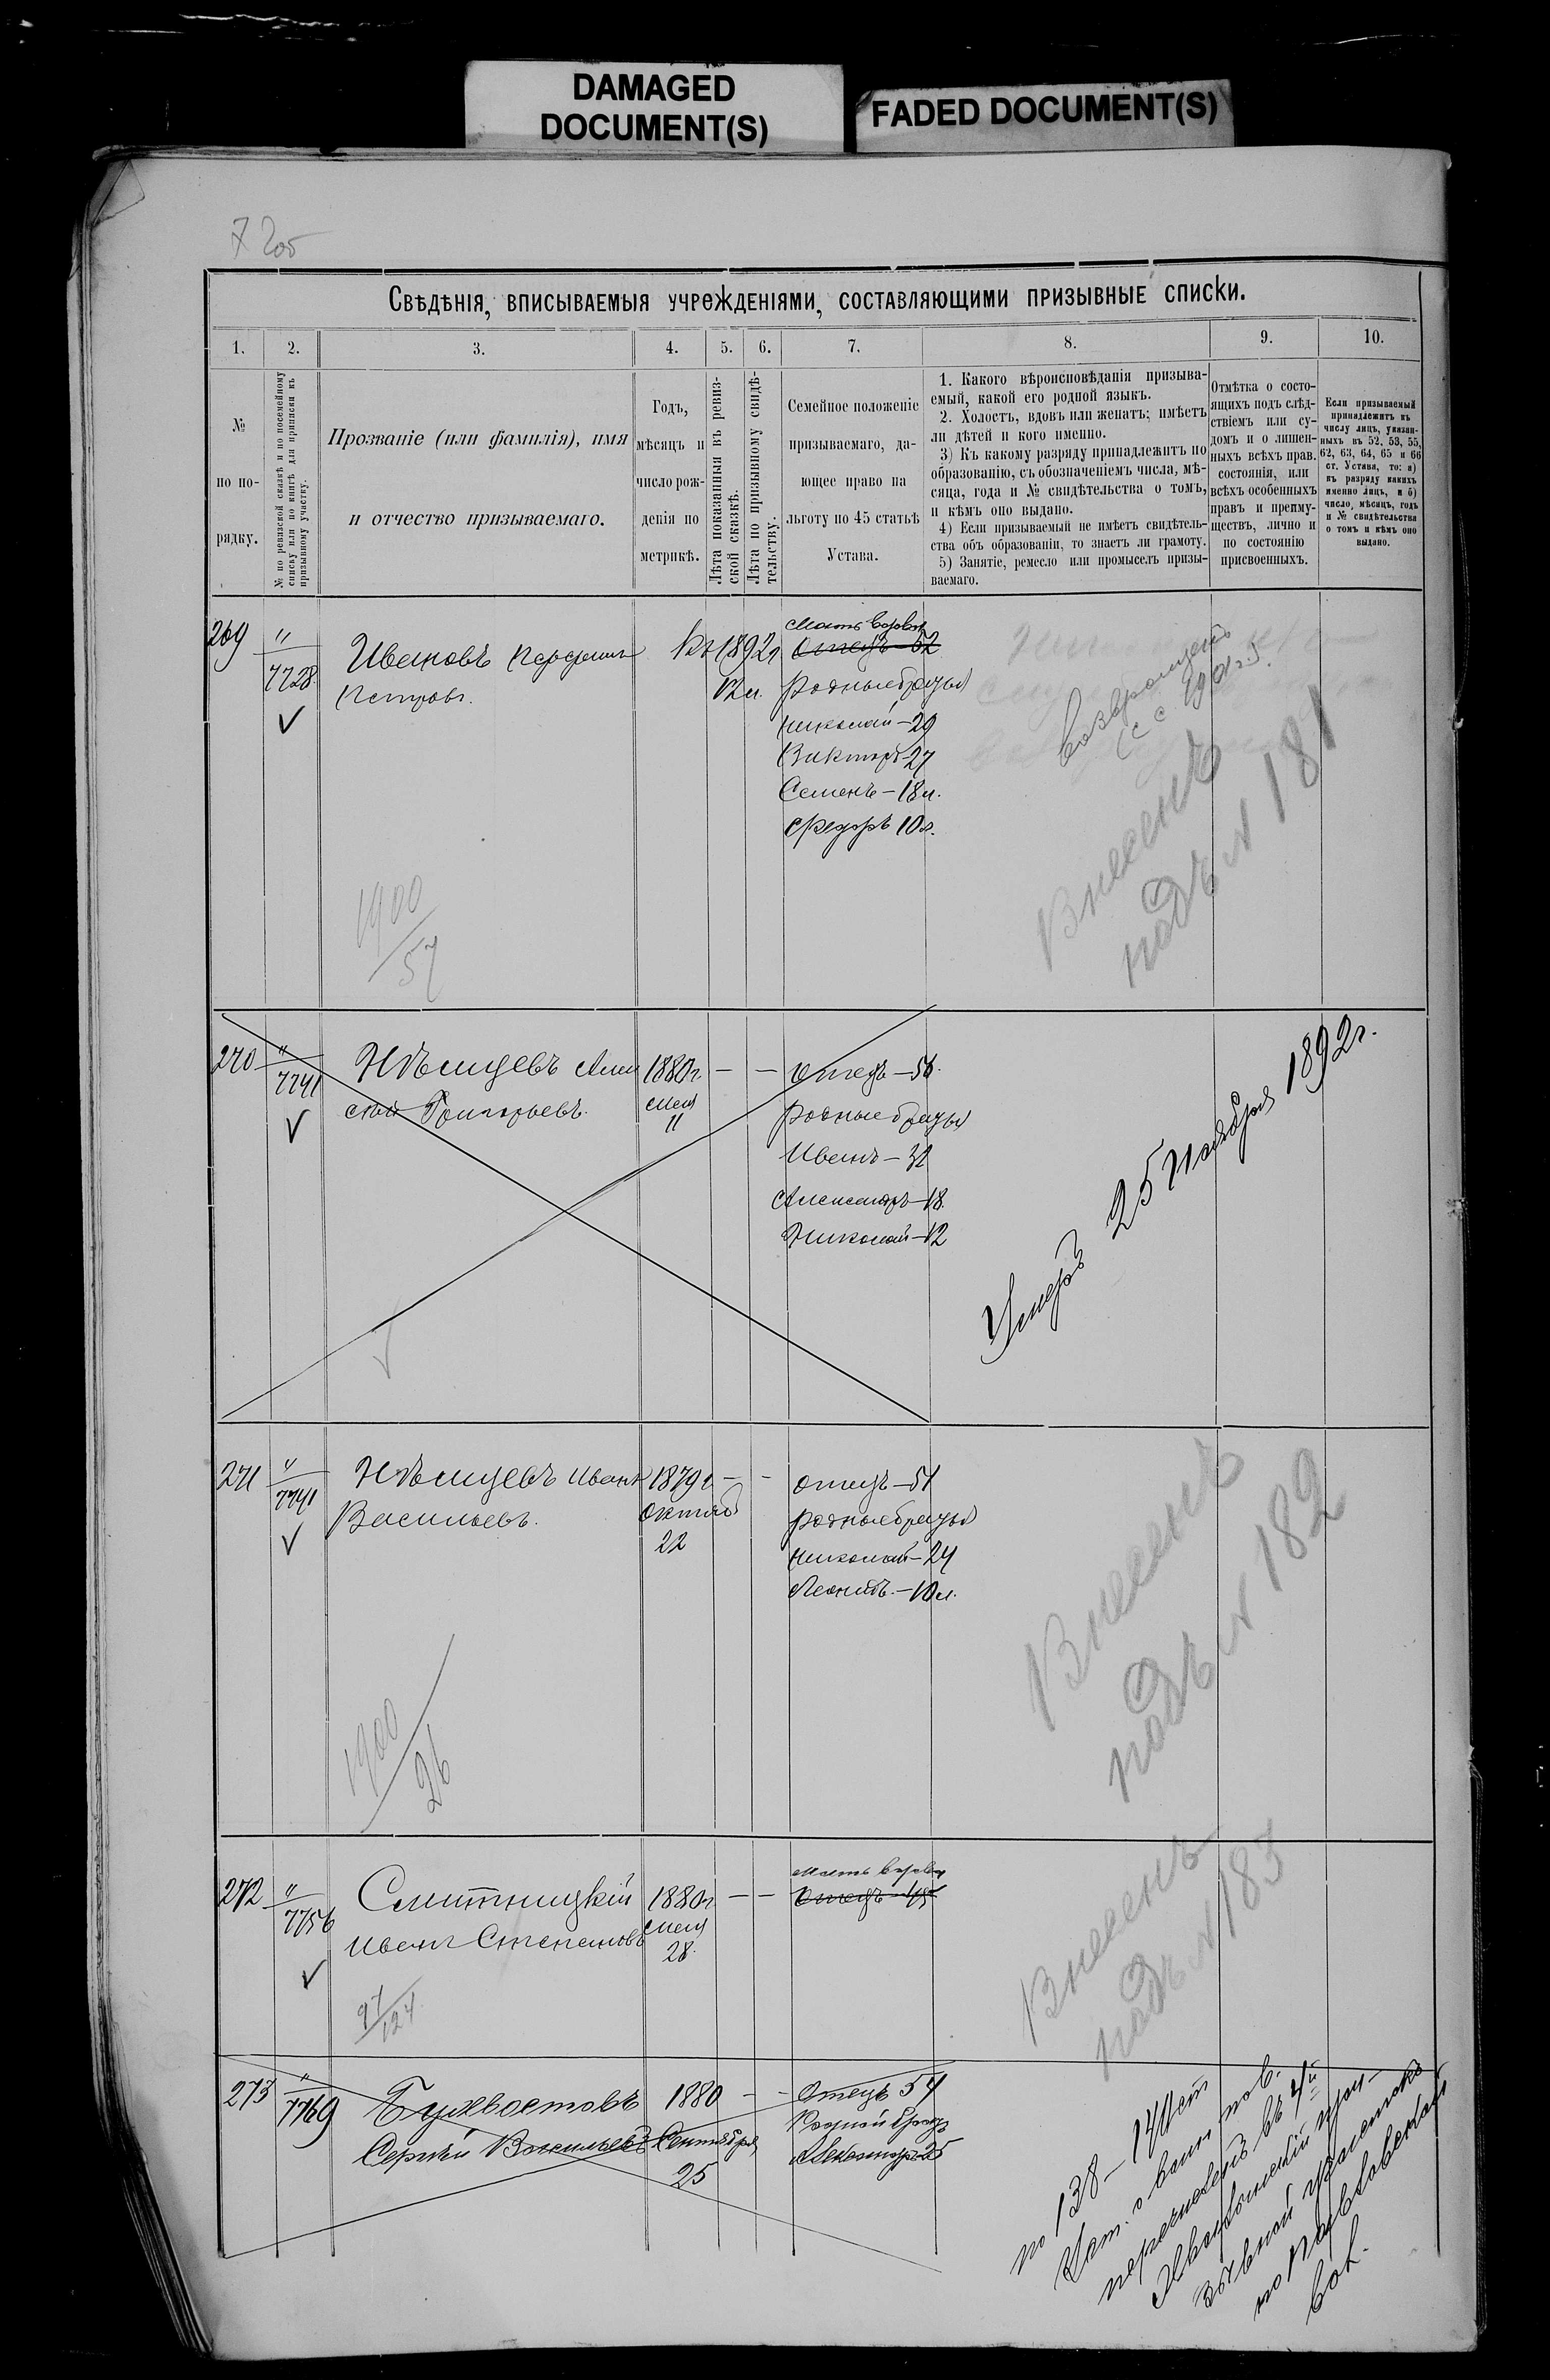 DAMAGED
DOCUMENT(S)
FADED DOCUMENT(S)
Свѣдѣнія, вписываемыя учрежденіями, составляющими призывные списки.
1.
2.
3.
4.
5.
6.
7.
8.
9.
10.
№
по по-
рядку.
№ по ревизской сказкѣ и по посемейному
списку или по книгѣ для приписки къ
призывному участку.
Прозваніе (или фамилія), имя
и отчество призываемаго.
Годъ,
мѣсяцъ и
число рож-
денія по
метрикѣ.
Лѣта показанныя въ ревиз-
ской сказкѣ.
Лѣта по призывному свидѣ-
тельству.
Семейное положеніе
призываемаго, да-
ющее право на
льготу по 45 статьѣ
Устава.
1. Какого вѣроисповѣданія призыва-
емый, какой его родной языкъ.
2. Холостъ, вдовъ или женатъ; имѣетъ
ли дѣтей и кого именно.
3) Къ какому разряду принадлежитъ по
образованію, съ обозначеніемъ числа, мѣ-
сяца, года и № свидѣтельства о томъ,
и кѣмъ оно выдано.
4) Если призываемый не имѣетъ свидѣтель-
ства объ образованіи, то знаетъ ли грамоту.
5) Занятіе, ремесло или промыселъ призы-
ваемаго.
Отмѣтка о состо-
ящихъ подъ слѣд-
ствіемъ или су-
домъ и о лишен-
ныхъ всѣхъ прав.
состоянія, или
всѣхъ особенныхъ
правъ и преиму-
ществъ, лично и
по состоянію
присвоенныхъ.
Если призываемый
принадлежитъ къ
числу лицъ, указан-
ныхъ въ 52, 53, 55,
62, 63, 64, 65 и 66
ст. Устава, то: а)
къ разряду какихъ
именно лицъ, и б)
число, мѣсяцъ, годъ
и № свидѣтельства
о томъ и кѣмъ оно
выдано.
269
"
7728
Ивановъ
Петровъ.
Къ 1892г
12л.
Мать вдова
Отецъ - 52
Родные братья
Николай - 29
Викторъ - 27
Семенъ - 18л.
Федоръ 10л.
Внесенъ
подъ № 181
1900
57
270
"
7741
Нѣмцевъ Алек
сѣй Григорьевъ.
1880г
11
— —
Отецъ - 56
Родные братья
Иванъ - 32
Александръ - 18
Николай - 12
Умеръ 25 Ноября 1892г.
271
"
7741
Нѣмцевъ Иванъ
Васильевъ.
1879г
октяб
22
— —
Отецъ - 51
Родные братья
Николай - 24
Леонидъ. - 10л.
Внесенъ
подъ № 182
1900
26
272
"
7756
Смитницкій
Иванъ Степановъ
1880г
28.
— —
Мать вдова
Отецъ - 45
Внесенъ
подъ № 183
97
124
273
"
7769
Бухвостовъ
Сергѣй Васильевъ
1880
Сентября
25
— —
Отецъ 54
Родной братъ
Александръ 25
по 138 - 140 ст
Уст. о воин. пов.
перечисленъ въ 4й